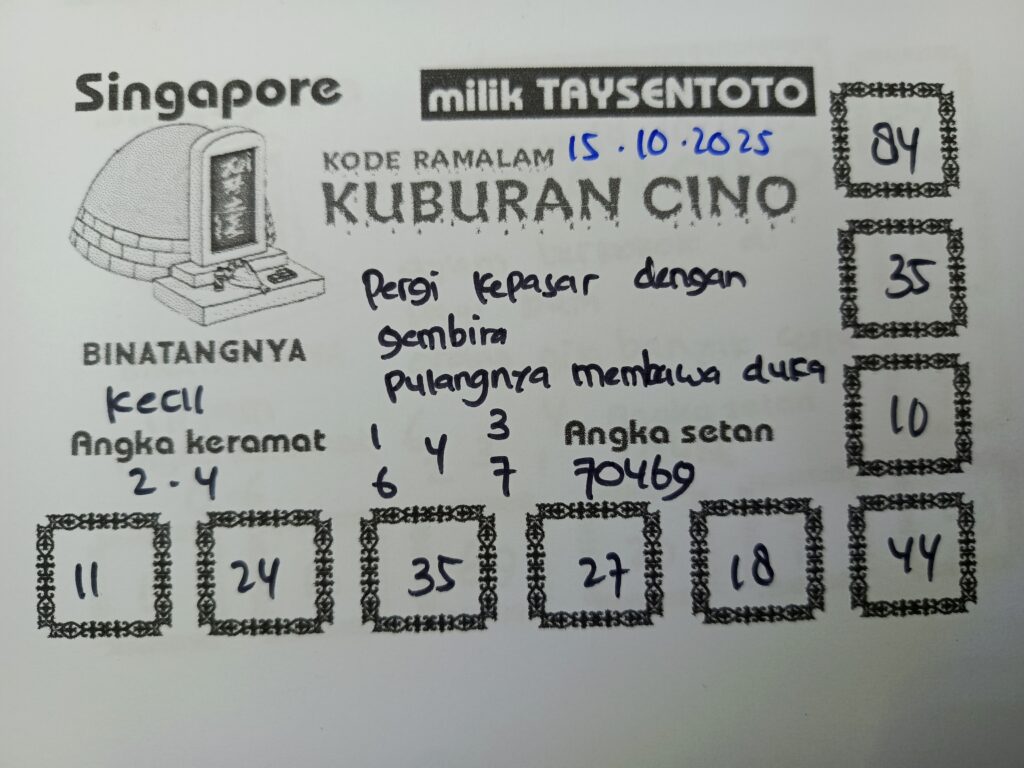 Singapore
milik TAYSENTOTO
KODE RAMALAM 15.10.2025
KUBURAN CINO
84
35
10
Pergi kepasar dengan
gembira
pulangnya membawa duka
BINATANGNYA
Kecil
Angka keramat
2.4
1 3
4
6 7
Angka setan
70469
11 24 35 27 18 44